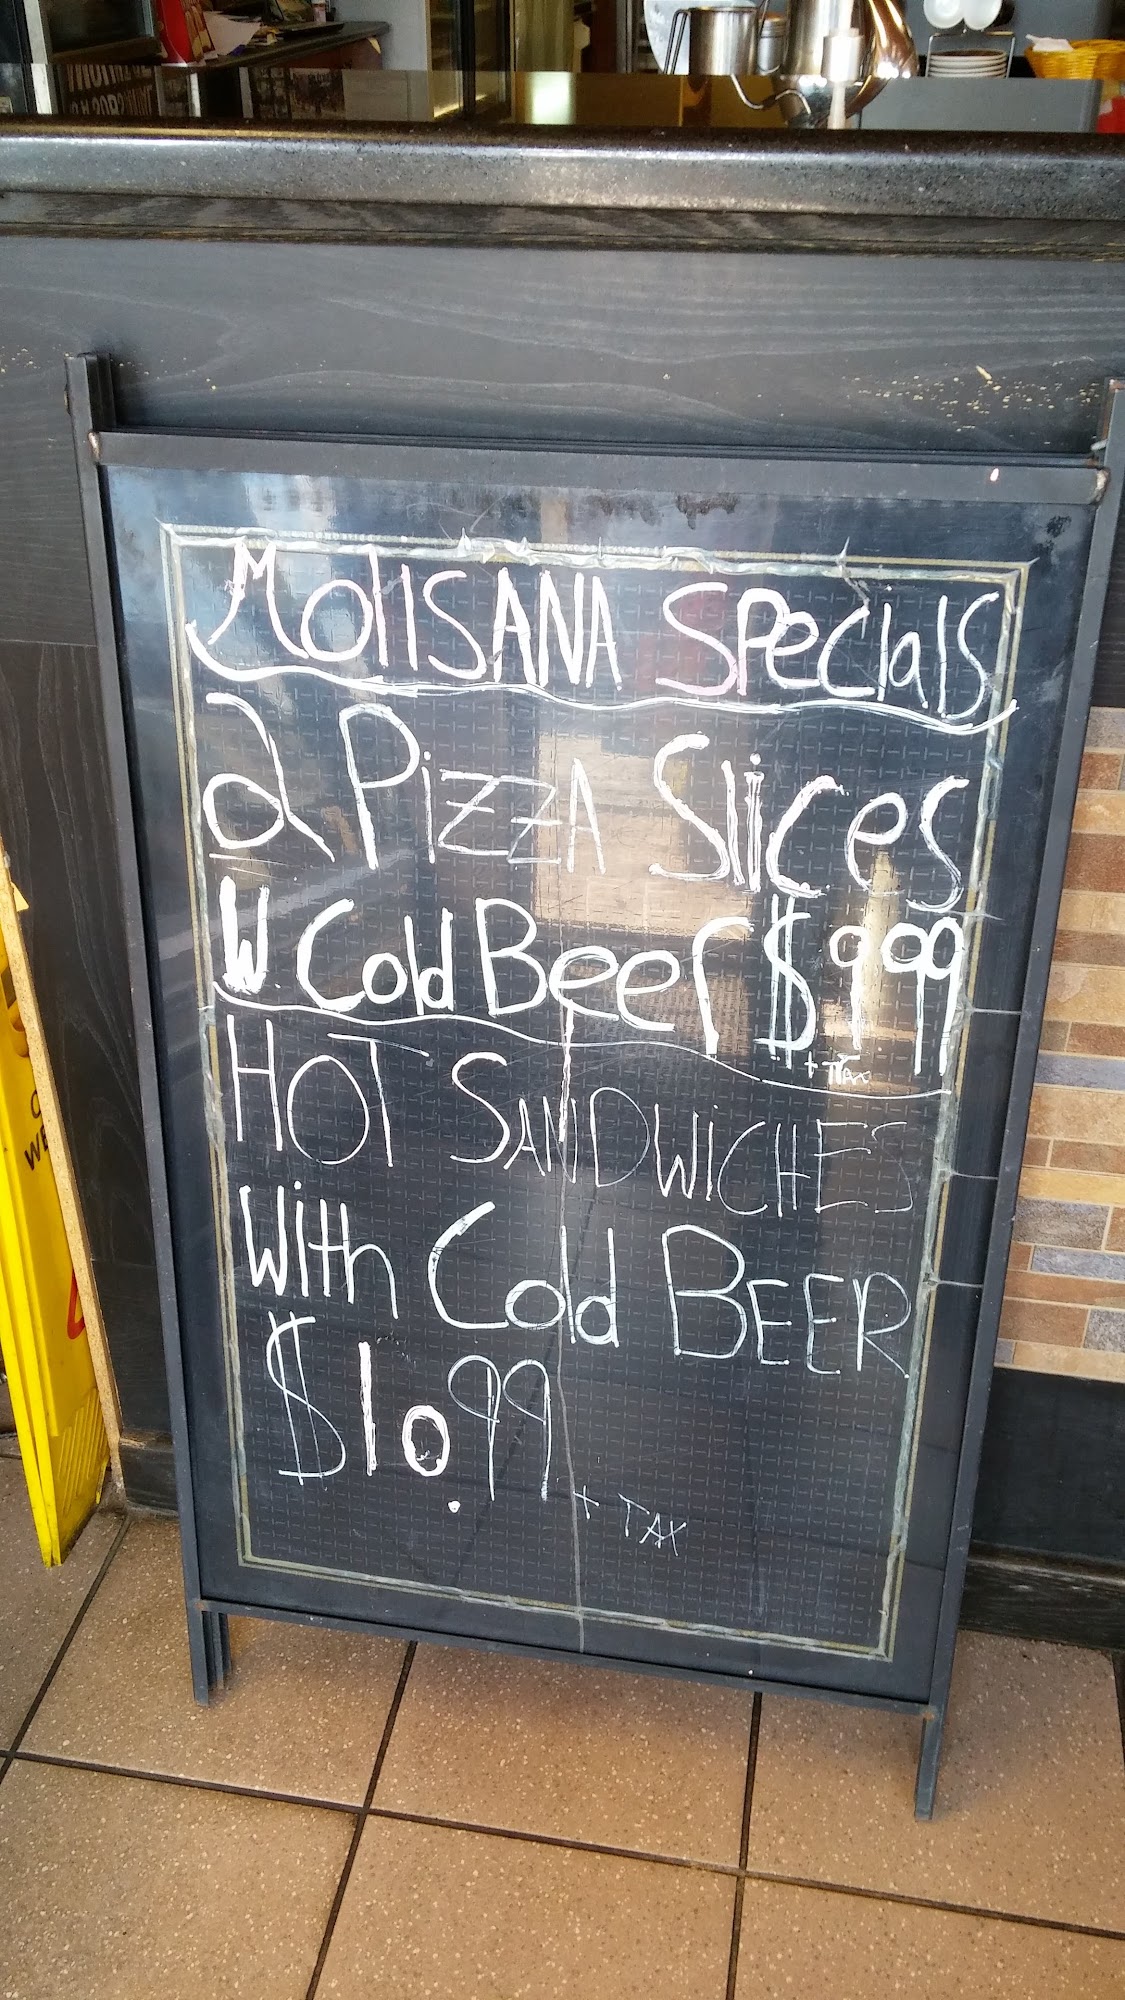 MOlISANA SPecials
2 PiZZA Slices
W. Cold Beer $9.99
+ TAX
HOT SANDWiCHES
With Cold BEER
$10.99
+ TAX